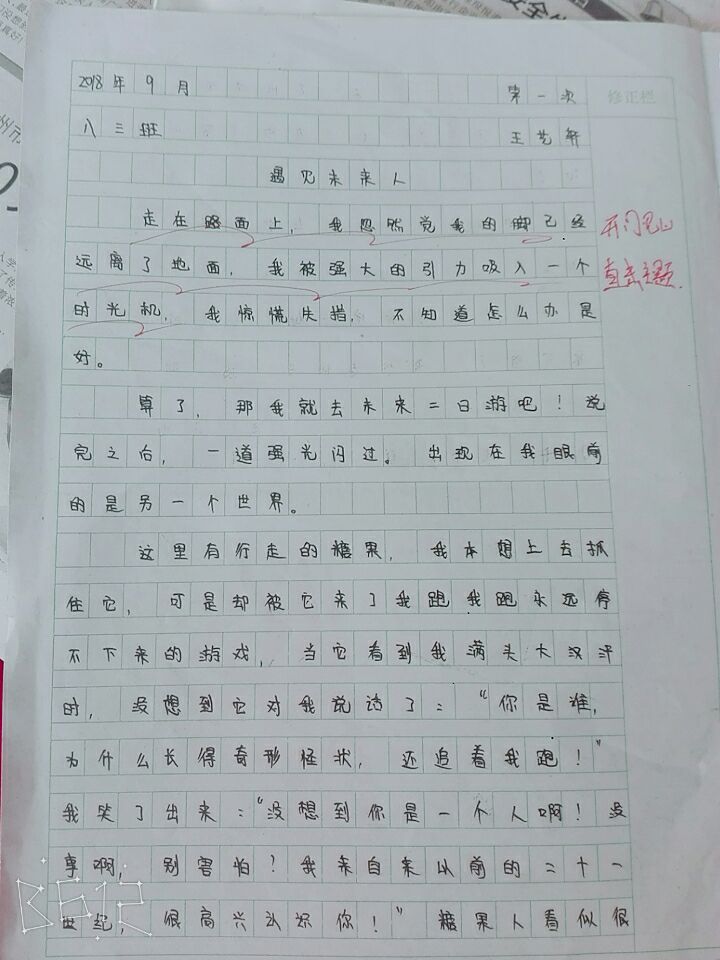 2018年9月 第一次 修正栏
八三班 王艺轩
遇见未来人
走在路面上，我忽然觉我的脚已经
远离了地面，我被强大的引力吸入一个
时光机，我惊慌失措，不知道怎么办是
好。
开门见山
直击主题
算了，那我就去未来二日游吧！说
完之后，一道强光闪过。出现在我眼前
的是另一个世界。
这里有行走的糖果，我本想上去抓
住它，可是却被它来了我跑我跑永远停
不下来的游戏，当它看到我满头大汉汗
时，没想到它对我说话了：“你是谁，
为什么长得奇形怪状，还追着我跑！”
我笑了出来：“没想到你是一个人啊！没
事啊，别害怕？我来自来以前的二十一
世纪，很高兴认识你！”糖果人看似很
B612